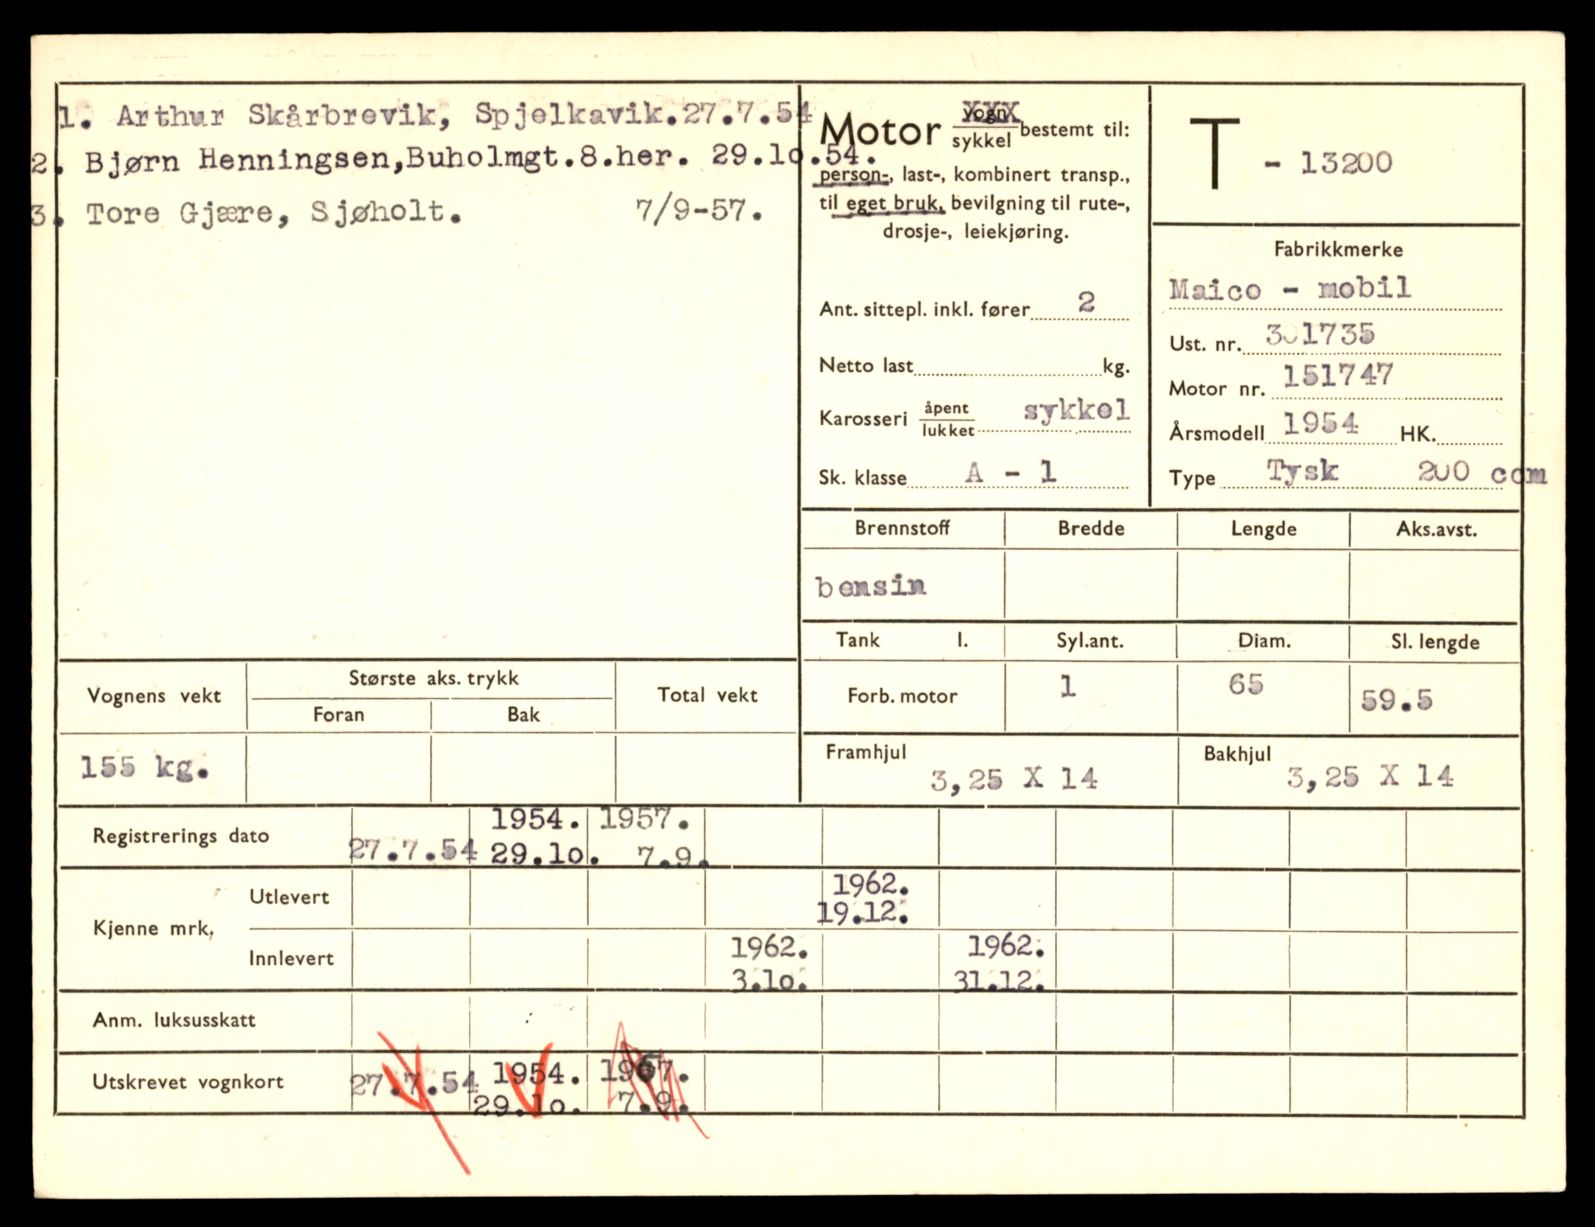 1. Arthur Skårbrevik, Spjelkavik.27.7.54
2. Bjørn Henningsen,Buholmgt.8.her. 29.1o.54.
3. Tore Gjære, Sjøholt. 7/9-57.
Motor vogn XXX
sykkel bestemt til:
person-, last-, kombinert transp.,
til eget bruk, bevilgning til rute-,
drosje-, leiekjøring.
Ant. sittepl. inkl. fører 2
Netto last kg.
Karosseri åpent
lukket sykkel
Sk. klasse A - 1
T - 13200
Fabrikkmerke
Maico - mobil
Ust. nr. 301735
Motor nr. 151747
Årsmodell 1954 HK.
Type Tysk 200 ccm
Brennstoff Bredde Lengde Aks.avst.
bensin
Tank l. Syl.ant. Diam. Sl. lengde
Forb. motor 1 65 59.5
Framhjul Bakhjul
3,25 X 14 3,25 X 14
Vognens vekt Største aks. trykk Total vekt
Foran Bak
155 kg.
Registrerings dato 27.7.54 1954. 1957.
29.1o. 7.9.
Kjenne mrk, Utlevert 1962.
19.12.
Innlevert 1962. 1962.
3.1o. 31.12.
Anm. luksusskatt
Utskrevet vognkort 27.7.54 1954. 1957.
29.1o. 7.9.